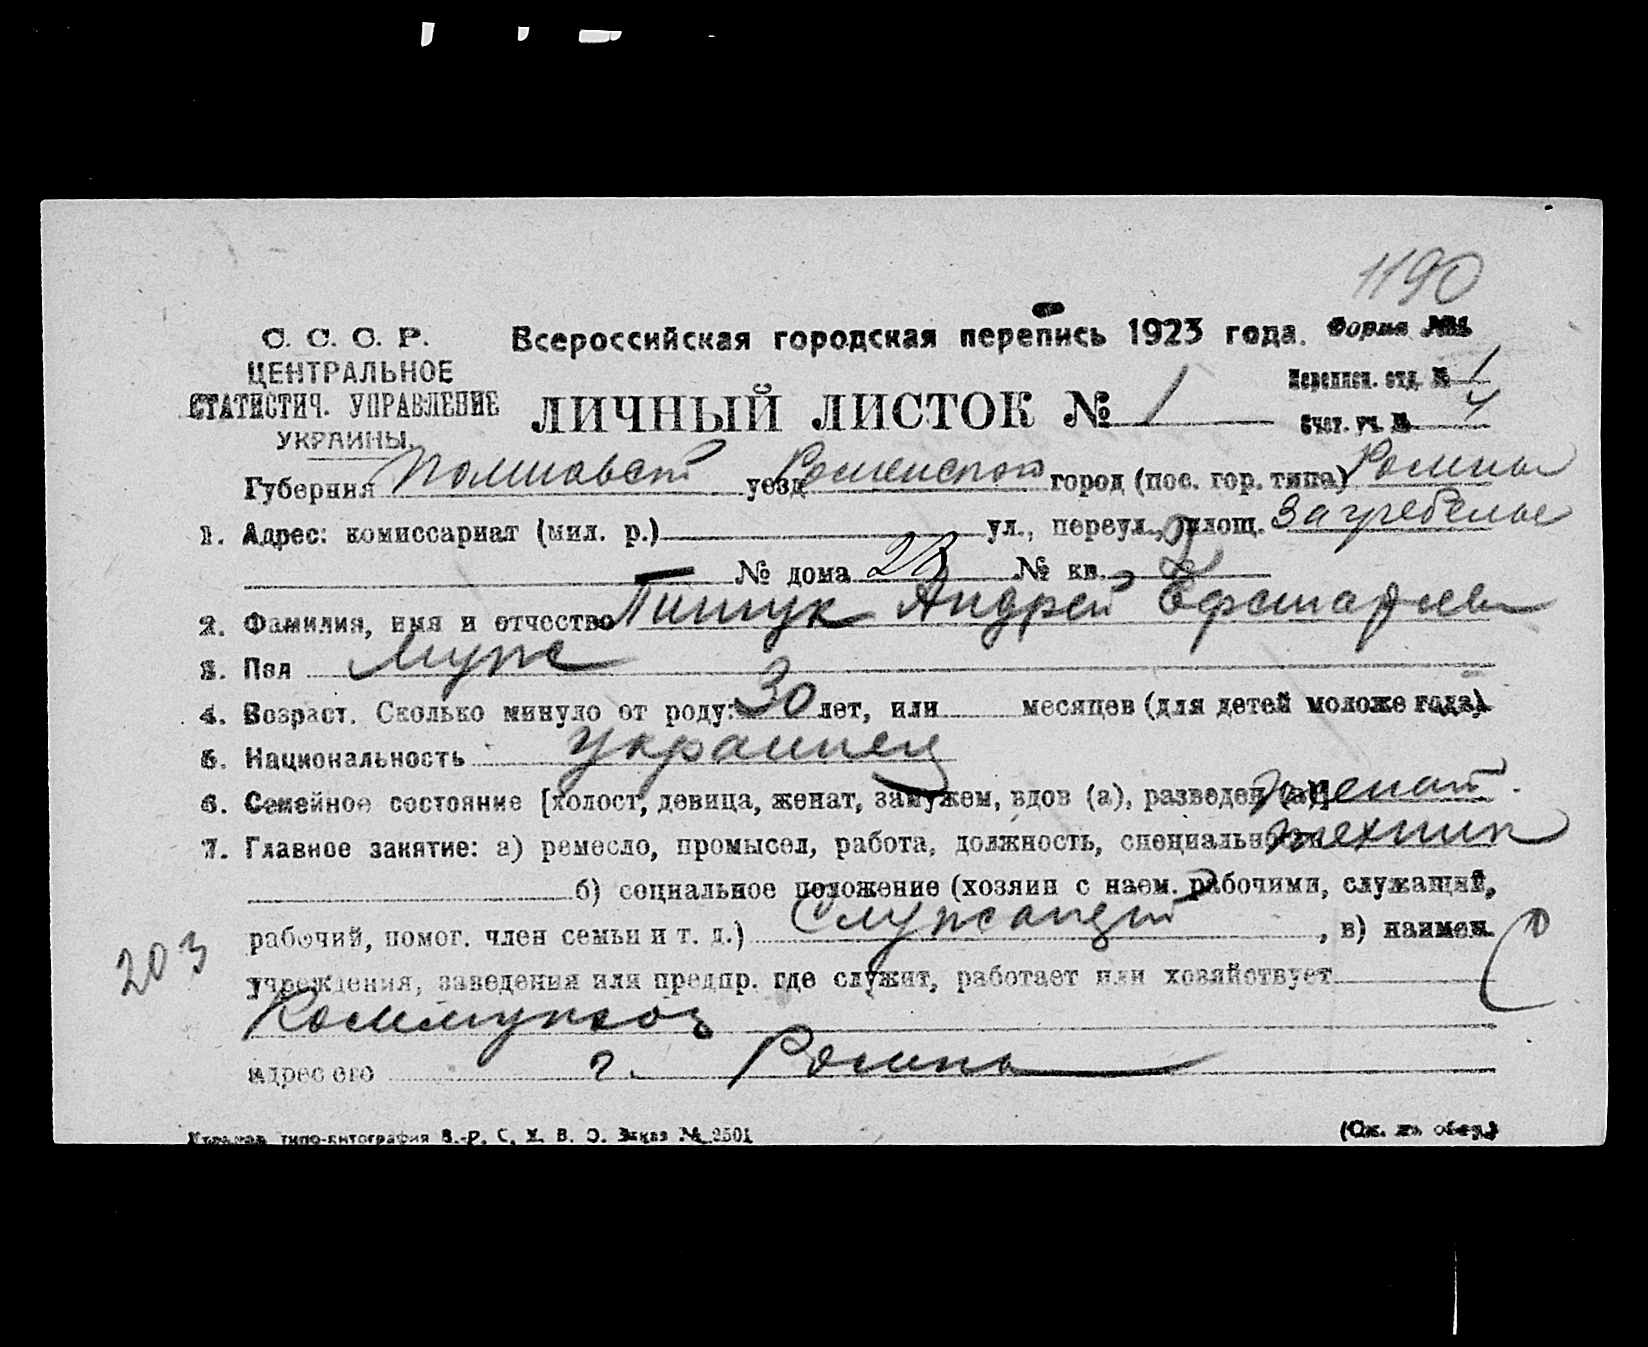 1190
С. С. С. Р.
ЦЕНТРАЛЬНОЕ
СТАТИСТИЧ. УПРАВЛЕНИЕ
УКРАИНЫ.
Всероссийская городская перепись 1923 года. Форма №1
ЛИЧНЫЙ ЛИСТОК № 1
Переписн. отд. № 1
Счет. уч. № 4
Губерния Полтавск уезд Роменского город (пос. гор. типа) Ромны
1. Адрес: комиссариат (мил. р.) ул., переул., площ. Загребелье
№ дома 23 № кв.
2. Фамилия, имя и отчество Пищук Андрей
3. Пол Муж
4. Возраст. Сколько минуло от роду: 30 лет, или месяцев (для детей моложе года)
5. Национальность украинец
6. Семейное состояние [холост, девица, женат, замужем, вдов (а), разведен (а)] женат.
7. Главное занятие: а) ремесло, промысел, работа, должность, специальность техник
б) социальное положение (хозяин с наем. рабочими, служащий,
рабочий, помог. член семьи и т. д.) Служащий , в) наимен.
203
учреждения, заведения или предпр. где служит, работает или хозяйствует
Коммунхоз
адрес его г. Ромны
типо-литография В.-Р. С. Х. В. О. Заказ № 2501
(См. на обор.)